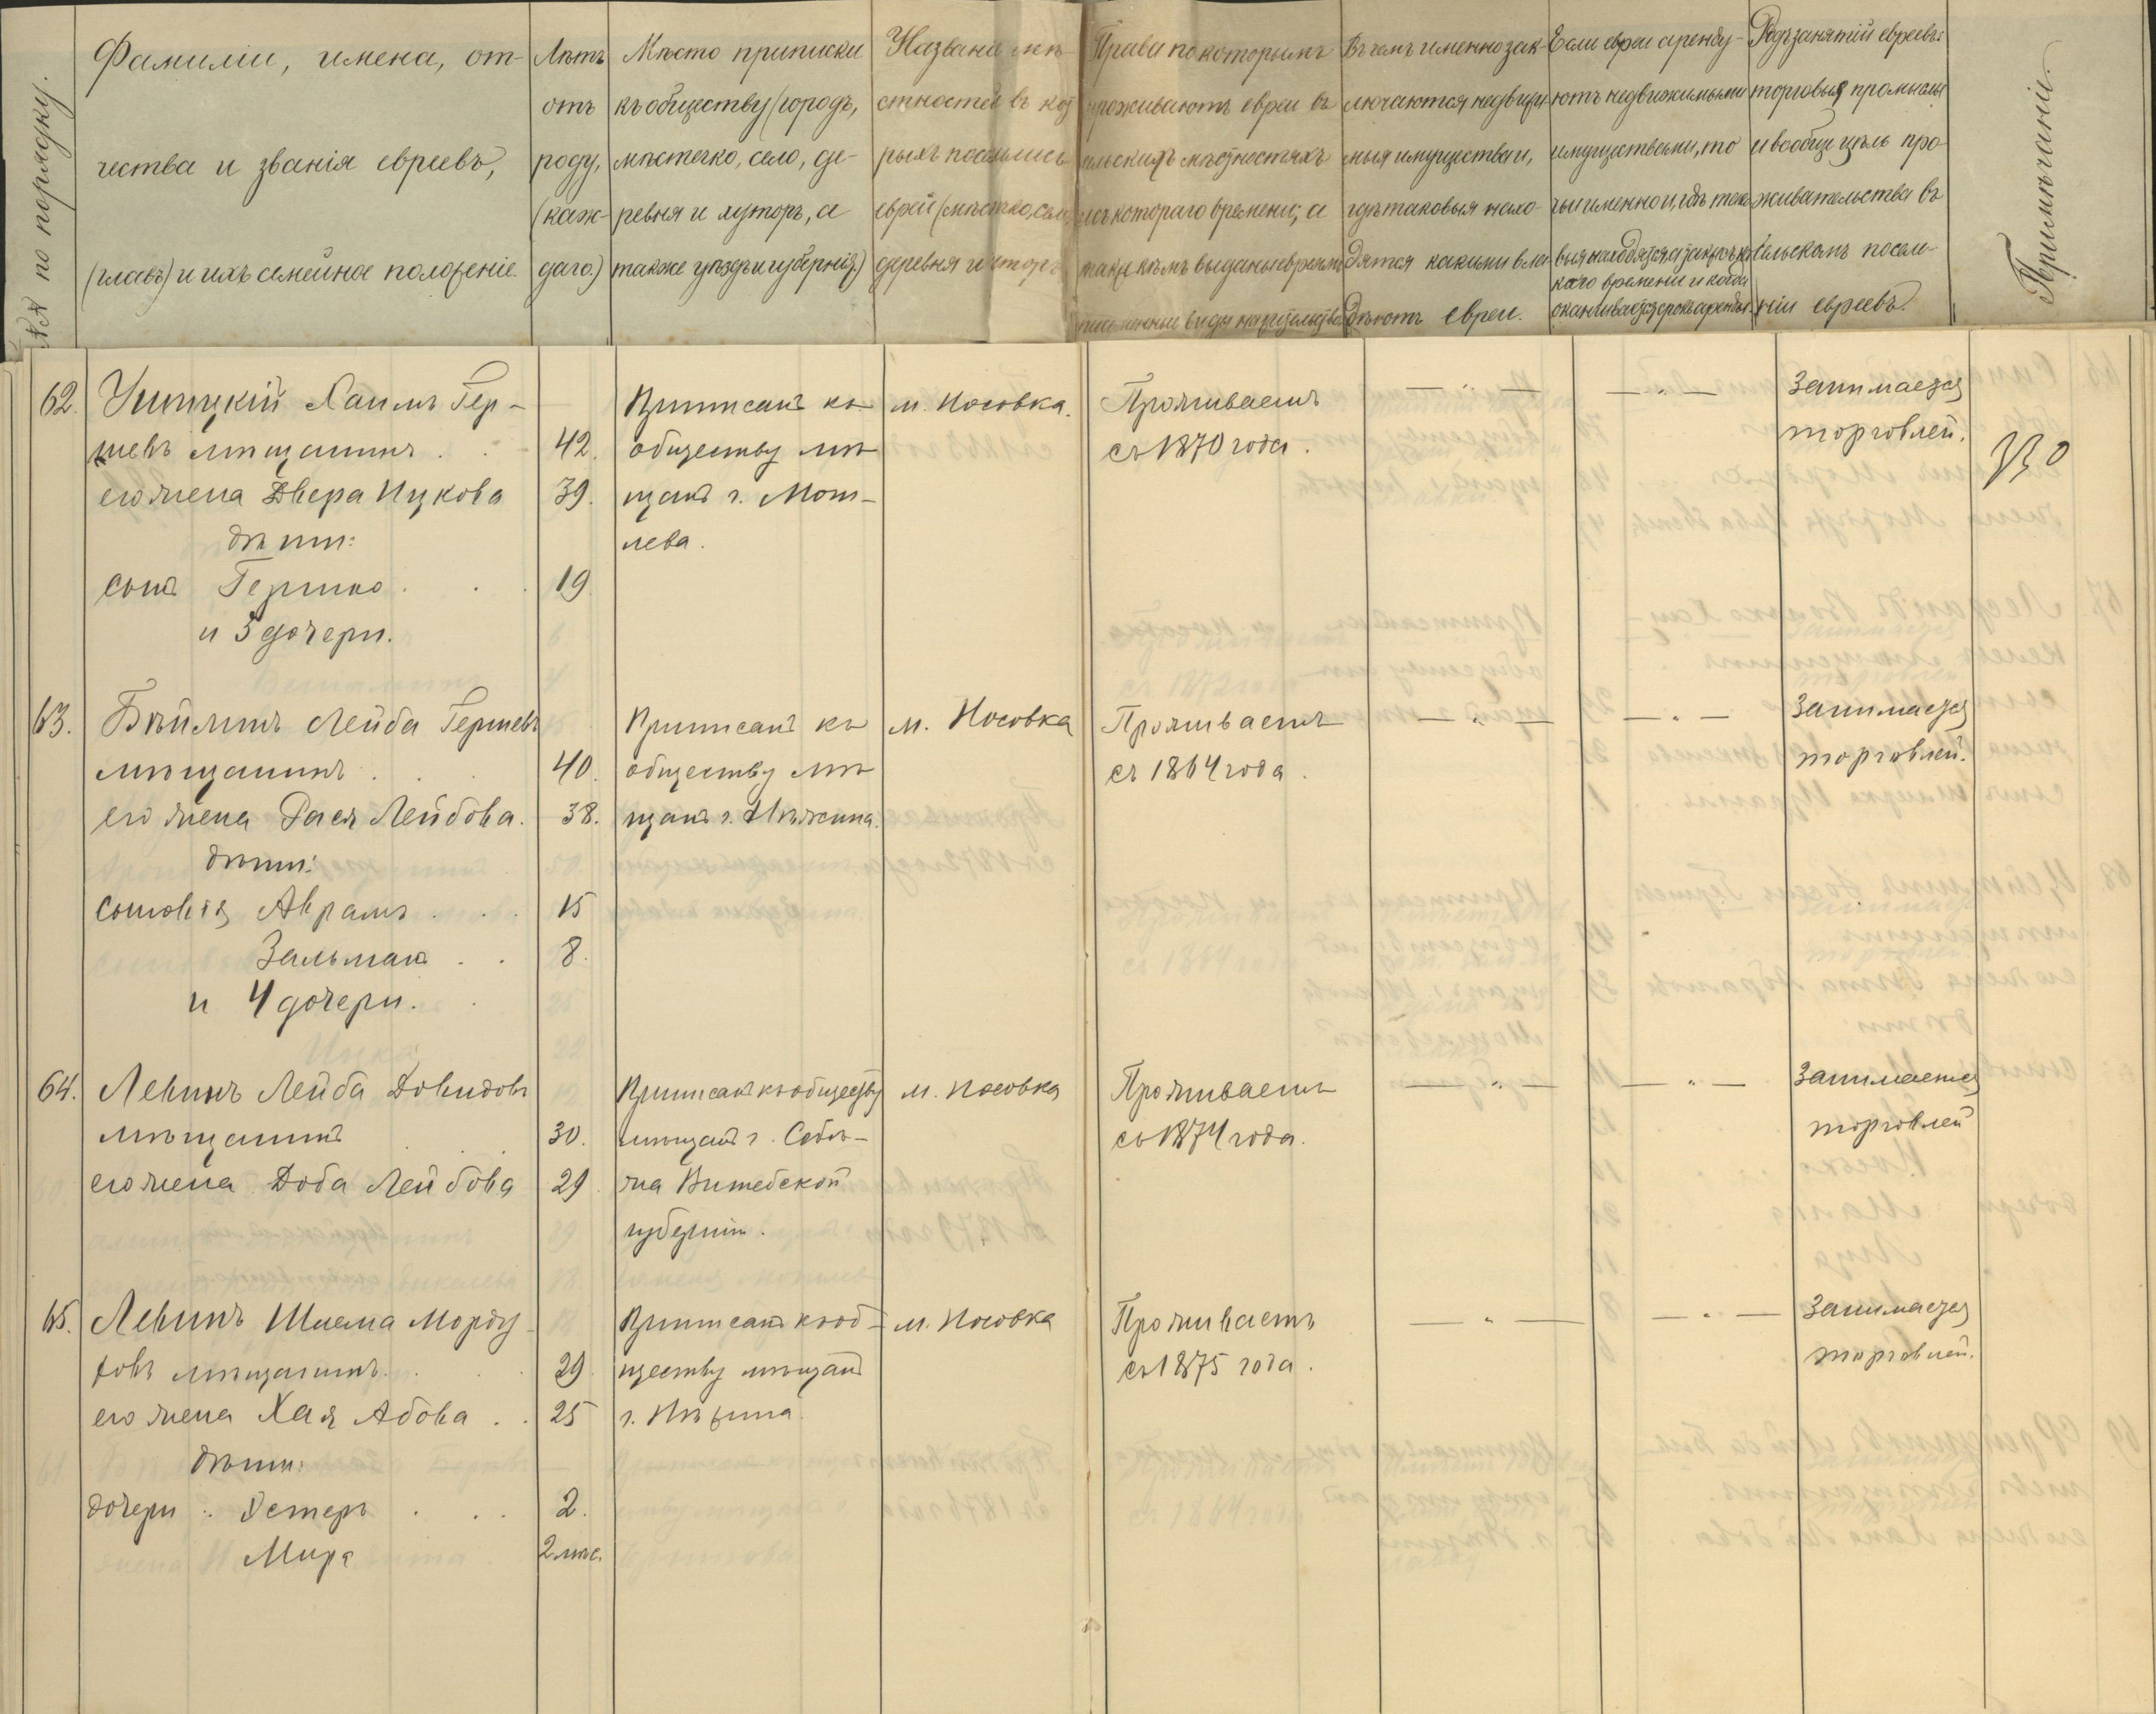 №№ по порядку.
Фамиліи, имена, от-
чества и званія евреевъ,
(главъ) и ихъ семейное положеніе.
Лѣтъ
отъ
роду,
(каж-
даго.)
Мѣсто приписки
къ обществу (городъ,
мѣстечко, село, де-
ревня и хуторъ, а
также уѣздъ и губернія.)
Названіе мѣ-
стностей въ кото
рыхъ поселились
евреи (мѣстечко, село,
деревня и хуторъ
Права по которымъ
проживаютъ евреи въ
сельскихъ мѣстностяхъ
съ котораго времени; а
также кѣмъ выданы евреямъ
письменные виды на жительство
Въ чемъ именно зак-
лючаются недвижи
мыя имущества и,
гдѣ таковыя нахо-
дятся какими вла-
дѣютъ евреи.
Если евреи аренду-
ютъ недвижимыми
имуществами, то
чьи именно и, гдѣ тако
выя находятся, съ
какого времени и когда
оканчивается срокъ аренды.
Родъ занятій евреевъ:
торговыя промыслы
и вообще цѣль про-
живательства въ
сельскомъ посели-
ніи евреевъ.
Примѣчаніе.
62. Хаимъ Гер- Приписанъ къ м. Носовка. Проживаетъ — „ — — „ — Занимается
шевъ мѣщанинъ . . 42. обществу мѣ съ 1870 года. торговлей.
его жена Двера Ицкова 39. щанъ г. Моги-
дѣти: лева.
сынъ Гершко . . . 19.
и 3 дочери.
63. Бѣйлинъ Лейба Гершевъ Приписанъ къ м. Носовка Проживаетъ — „ — — „ — Занимается
мѣщанинъ . . . 40. обществу мѣ съ 1864 года. торговлей.
его жена Рася Лейбова. 38. щанъ г. Нѣжина.
дѣти:
сыновья Абрамъ . . . 15
Зальманъ . . 8.
и 4 дочери. .
64. Левинъ Лейба Довидовъ Приписанъ къ обществу м. Носовка Проживаетъ — „ — — „ — Занимается
мѣщанинъ . . . 30. мѣщанъ г. съ 1874 года. торговлей
его жена Доба Лейбова 29. Витебской
губерніи.
65. Левинъ Шлема Морду- Приписанъ къ об- м. Носовка Проживаетъ — „ — — „ — Занимается
ховъ мѣщанинъ. . . 29. ществу мѣщанъ съ 1875 года. торговлей.
его жена Хая Абова . . 25 г. Нѣжина.
дѣти:
дочери : Эстеръ . . . 2.
Мира 2 мѣс.